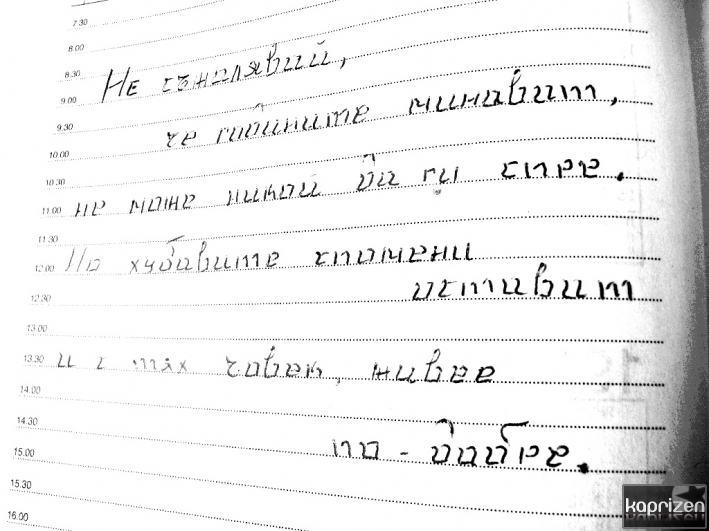 7.30
8.00
8.30
9.00
9.30
10.00
10.30
11.00
11.30
12.00
12.30
13.00
13.30
14.00
14.30
15.00
15.30
16.00
Не съжалявай,
че годините минават,
не може никой да ги спре.
Но хубавите спомени
остават
и с тях човек, живее
по - добре.
kaprizen